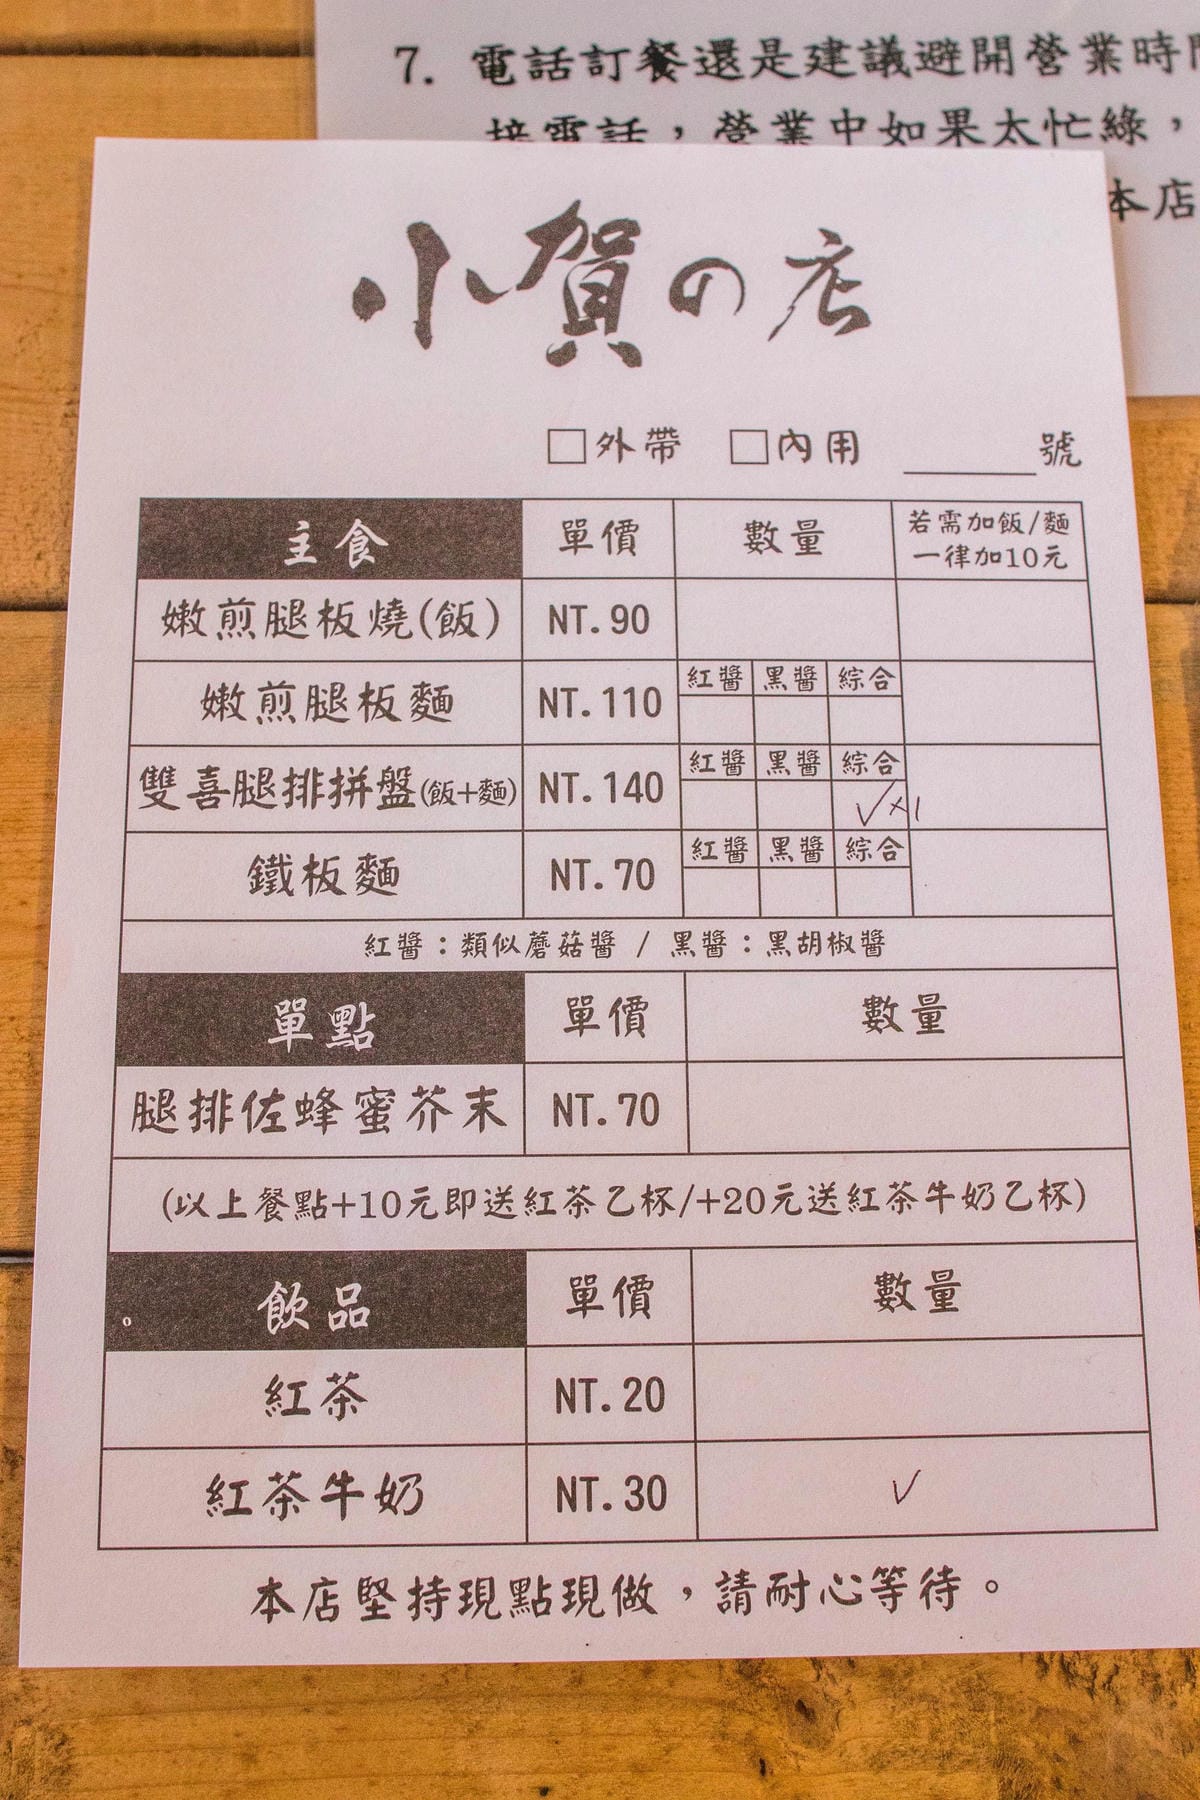 7. 電話訂餐還是建議避開營業時間
接電話，營業中如果太忙綠，
本店
小賀の店
□外帶 □內用 ______號
主食 單價 數量 若需加飯/麵
一律加10元
嫩煎腿板燒(飯) NT.90
嫩煎腿板麵 NT.110 紅醬 黑醬 綜合
雙喜腿排拼盤(飯+麵) NT.140 紅醬 黑醬 綜合
✓x1
鐵板麵 NT.70 紅醬 黑醬 綜合
紅醬：類似蘑菇醬 / 黑醬：黑胡椒醬
單點 單價 數量
腿排佐蜂蜜芥末 NT.70
(以上餐點+10元即送紅茶乙杯/+20元送紅茶牛奶乙杯)
飲品 單價 數量
紅茶 NT.20
紅茶牛奶 NT.30 ✓
本店堅持現點現做，請耐心等待。